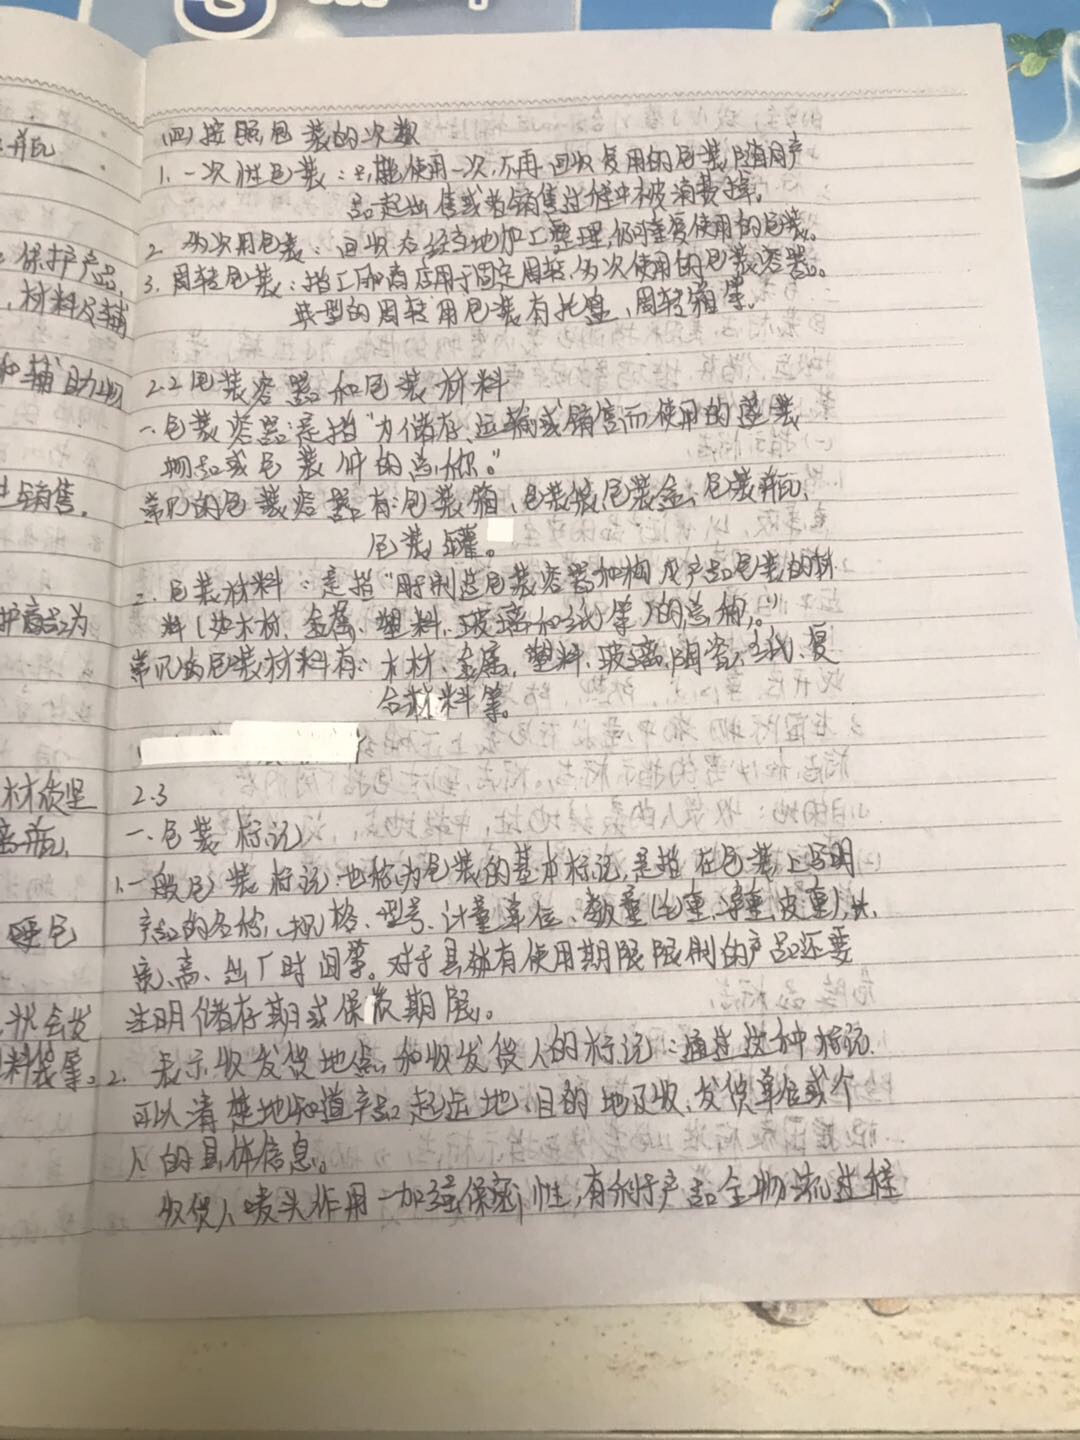 (四)按照包装的次数
1.一次性包装:只能使用一次,不再回收复用的包装,随着产
品一起出售或者销售过程中被消费掉。
2. 多次用包装:回收后经适当地加工整理,仍可重复使用的包装。
3. 周转包装:指工厂和商店用于固定周转,多次使用的包装容器。
典型的周转用包装有托盘、周转箱等。
2.2包装容器和包装材料
一.包装容器:是指"为储存、运输或销售而使用的盛装
物品或包装件的总称。"
常见的包装容器有:包装箱、包装袋、包装盒、包装瓶、
包装罐。
二.包装材料:是指"用于制造包装容器和构成产品包装的材
料(如木材、金属、塑料、玻璃和纸等)的总称。"
常见的包装材料有:木材、金属、塑料、玻璃、陶瓷、纸、复
合材料等。
2.3
一.包装标记
1.一般包装标记:也称为包装的基本标记,是指在包装上写明
产品的名称、规格、型号、计量单位、数量(毛重、净重、皮重)、长、
宽、高、出厂时间等。对于具有使用期限限制的产品还要
注明储存期或保质期限。
2. 表示收发货地点和收发货人的标记:通过这种标记
可以清楚地知道产品起运地、目的地及收、发货单位或个
人的具体信息。
收货人唛头作用—加强保密性,有利于产品全物流过程
瓶
保护产品,
,材料及辅
和辅助物
销售,
护商品为
材质坚
瓶,
硬包
状会发
料袋等。